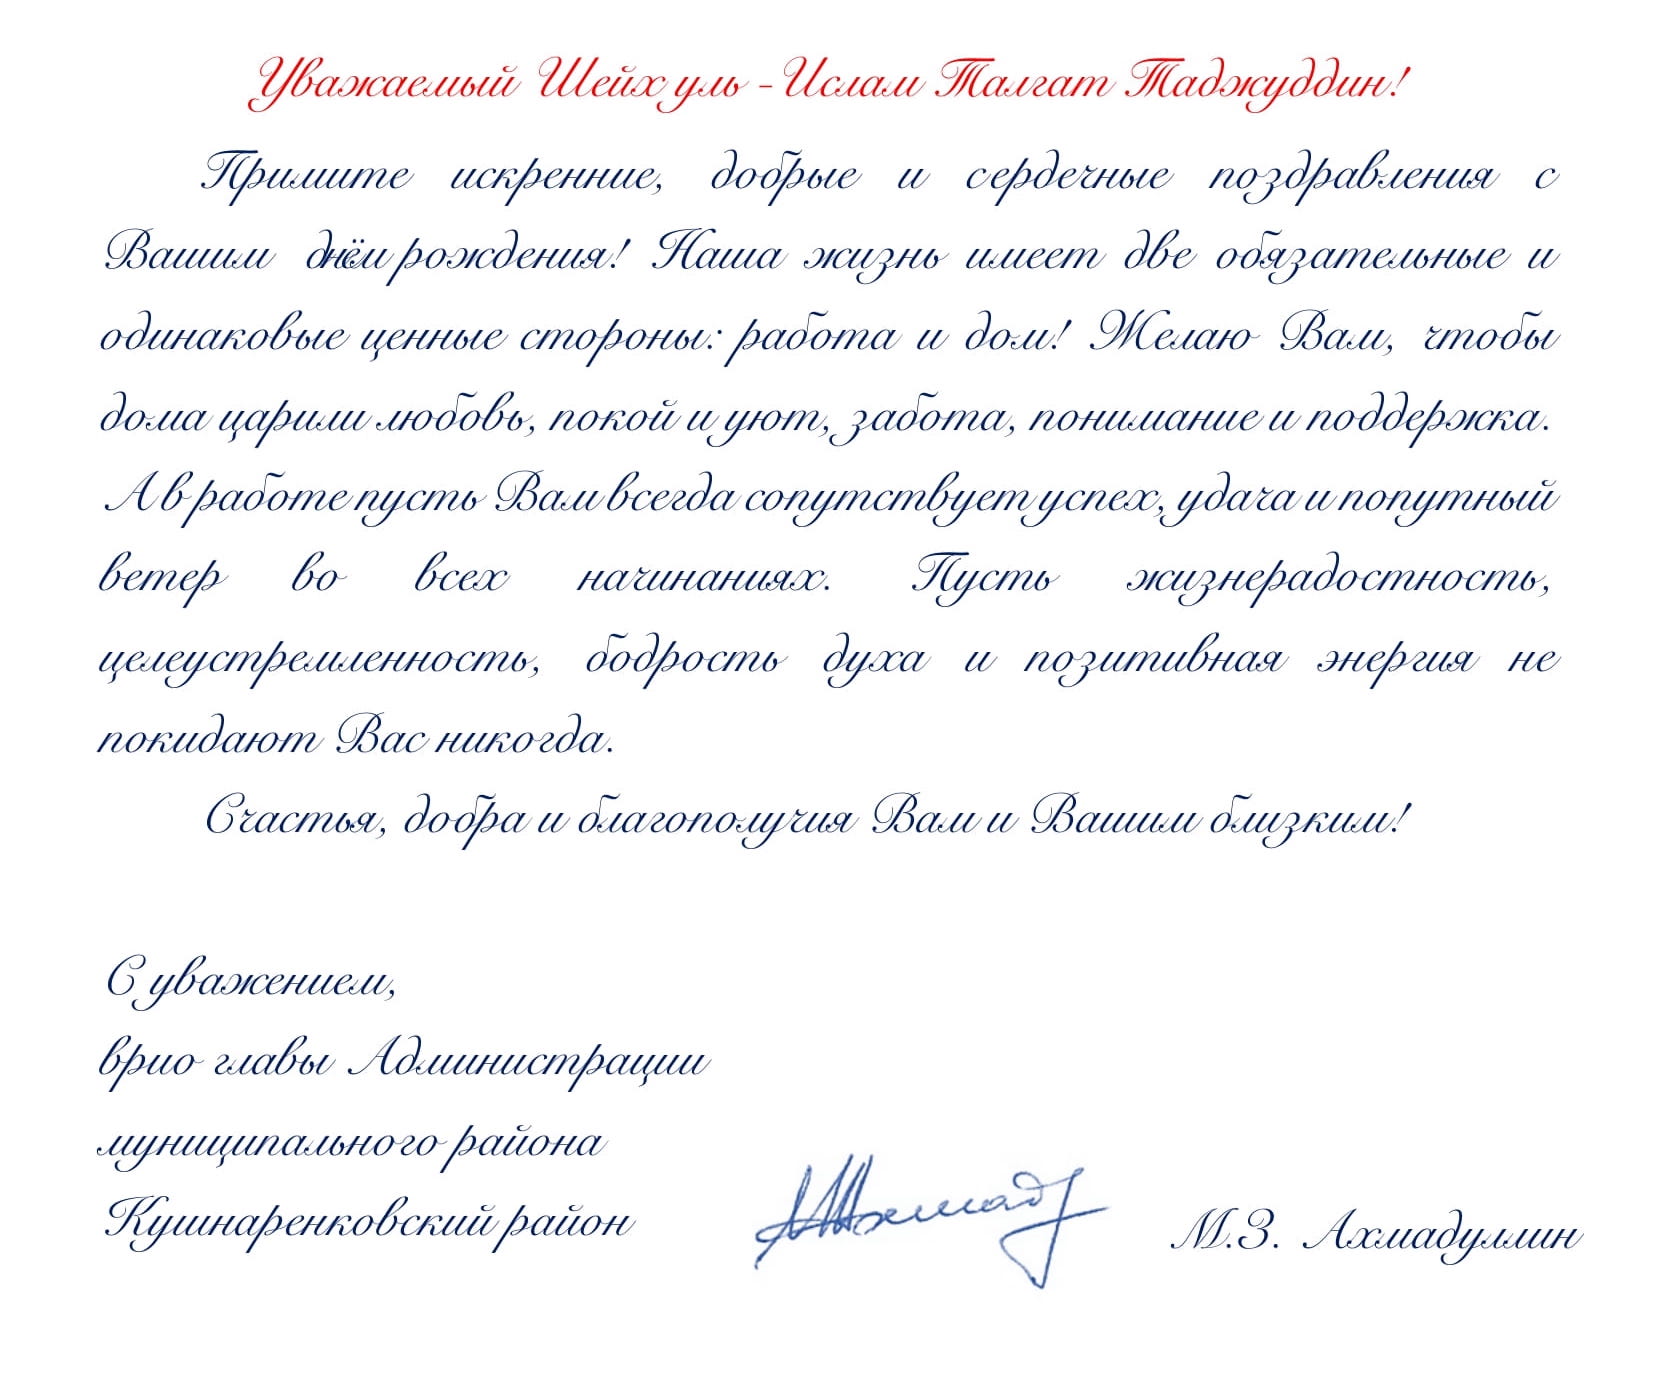 Уважаемый Шейх уль -Ислам Талгат Таджуддин!
Примите искренние, добрые и сердечные поздравления с
Вашим днём рождения! Наша жизнь имеет две обязательные и
одинаковые ценные стороны: работа и дом! Желаю Вам, чтобы
дома царили любовь, покой и уют, забота, понимание и поддержка.
А в работе пусть Вам всегда сопутствует успех, удача и попутный
ветер во всех начинаниях. Пусть жизнерадостность,
целеустремленность, бодрость духа и позитивная энергия не
покидают Вас никогда.
Счастья, добра и благополучия Вам и Вашим близким!
С уважением,
врио главы Администрации
муниципального района
Кушнаренковский район
М.З. Ахмадуллин